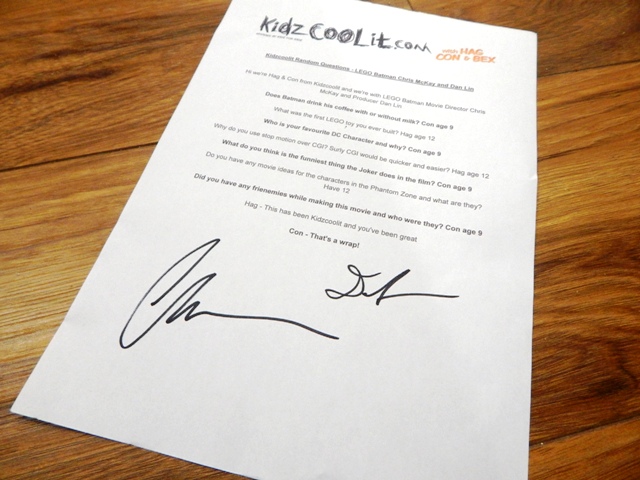 Kidz COOLit.com
with HAG
CON & BEX
Kidzcoolit Random Questions - LEGO Batman Chris McKay and Dan Lin
Hi we're Hag & Con from Kidzcoolit and we're with LEGO Batman Movie Director Chris
McKay and Producer Dan Lin
Does Batman drink his coffee with or without milks? Con age 9
What was the first LEGO toy you ever built? Hag age 12
Who is your favourite DC Character and why? Con age 9
Why do you use stop motion over CGI? Surly CGI would be quicker and easier? Hag age 12
What do you think is the funniest thing the Joker does in the film? Con age 9
Do you have any movie ideas for the characters in the Phantom Zone and what are they?
Have 12
Did you have any frienemies while making this movie and who were they? Con age 9
Hag - This has been Kidzcoolit and you've been great
Con - That's a wrap!